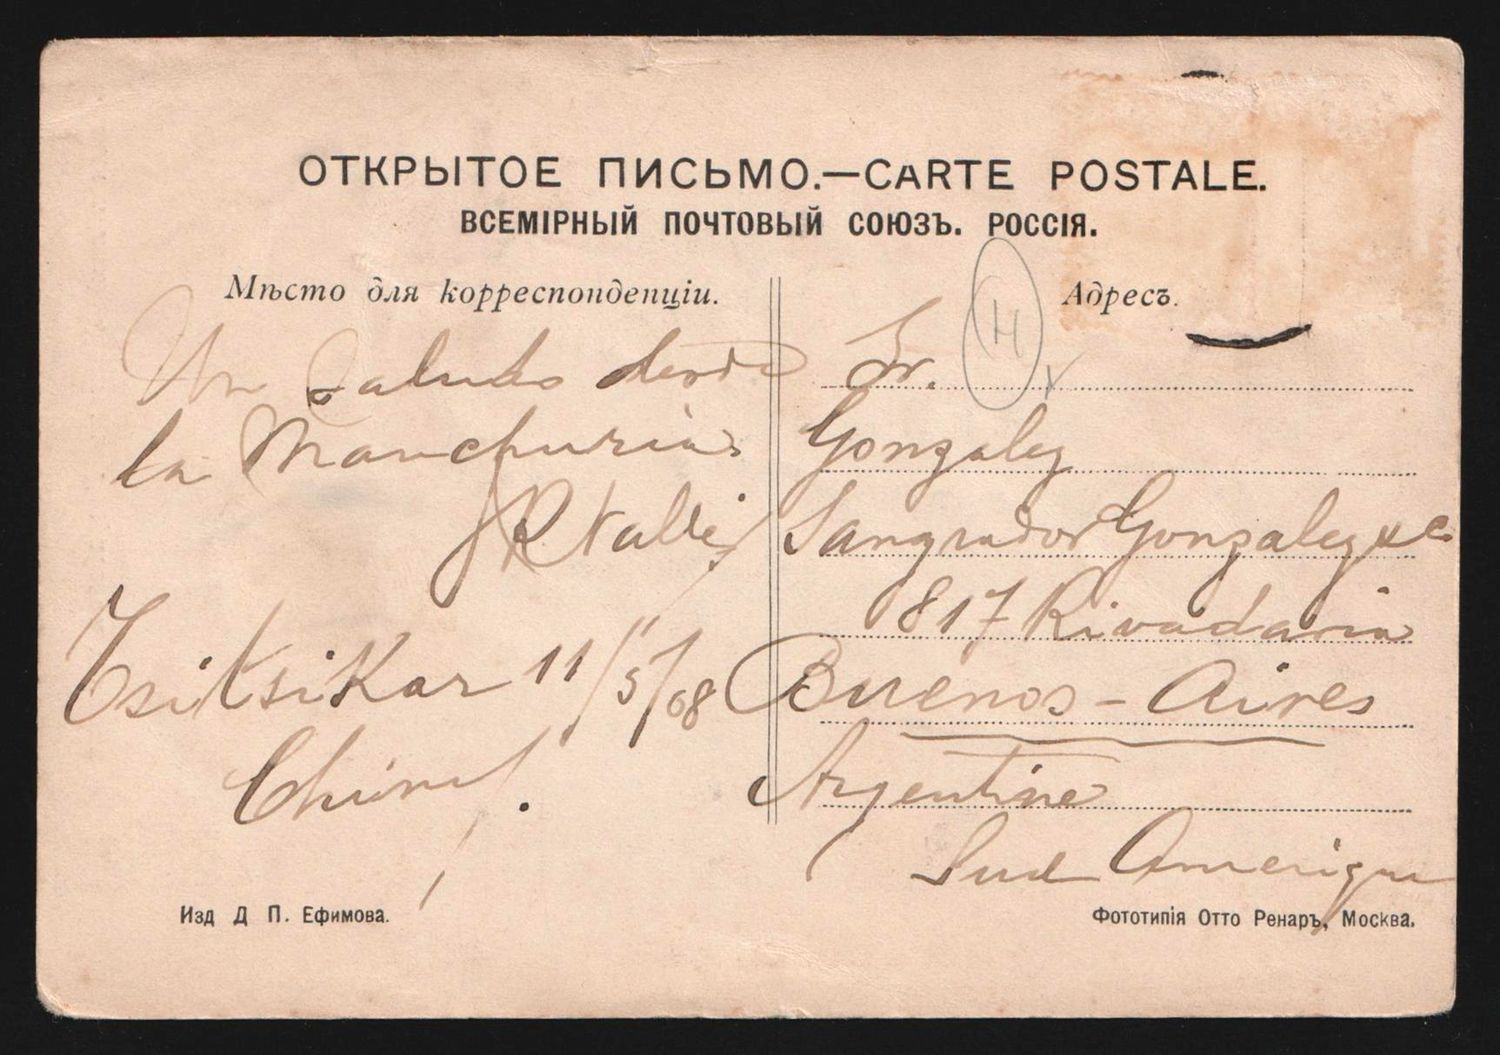 ОТКРЫТОЕ ПИСЬМО.—CARTE POSTALE.
ВСЕМІРНЫЙ ПОЧТОВЫЙ СОЮЗЪ. РОССІЯ.
Мѣсто для корреспонденціи.
Un saludo desde
la Manchuria
Tsitsikar 11/5/08
China
Адресъ.
Sr.
Gonzalez
Sangrador Gonzalez & Co
817 Rivadavia
Buenos-Aires
Argentine
Sud Amerique
Изд Д П. Ефимова.
Фототипія Отто Ренаръ, Москва.